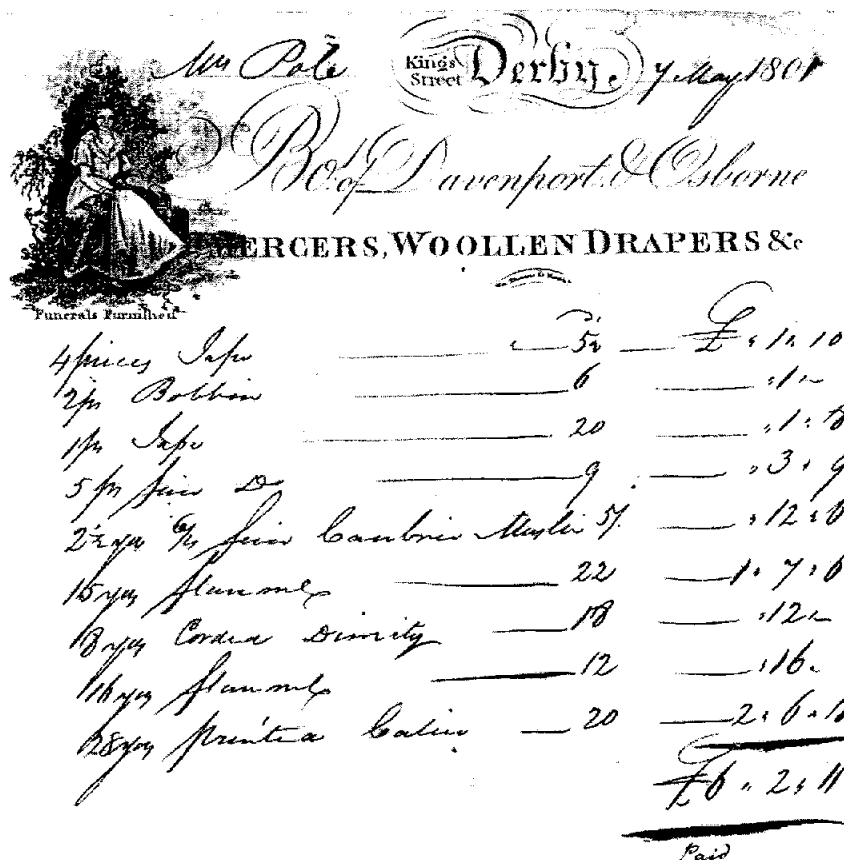 Mrs Pole King's Street Derby. 7 May 1801
Bo.t of Davenport & Osborne
MERCERS, WOOLLEN DRAPERS &c
Funerals Furnished
4 pieces Tape 5½ £ " 1 " 10
2 ps Bobbin 6 " 1 " -
1 ps Tape 20 " 1 " 8
5 ps fine Do 9 " 3 " 9
2½ yds fine Cambric Muslin 5/. " 12 " 6
15 yds flannel 22 1 " 7 " 6
8 yds Corded Dimity 18 " 12 " -
16 yds flannel 12 " 16 "
28 yds printed Calico 20 2 " 6 " 8
£6 " 2 " 11
Paid